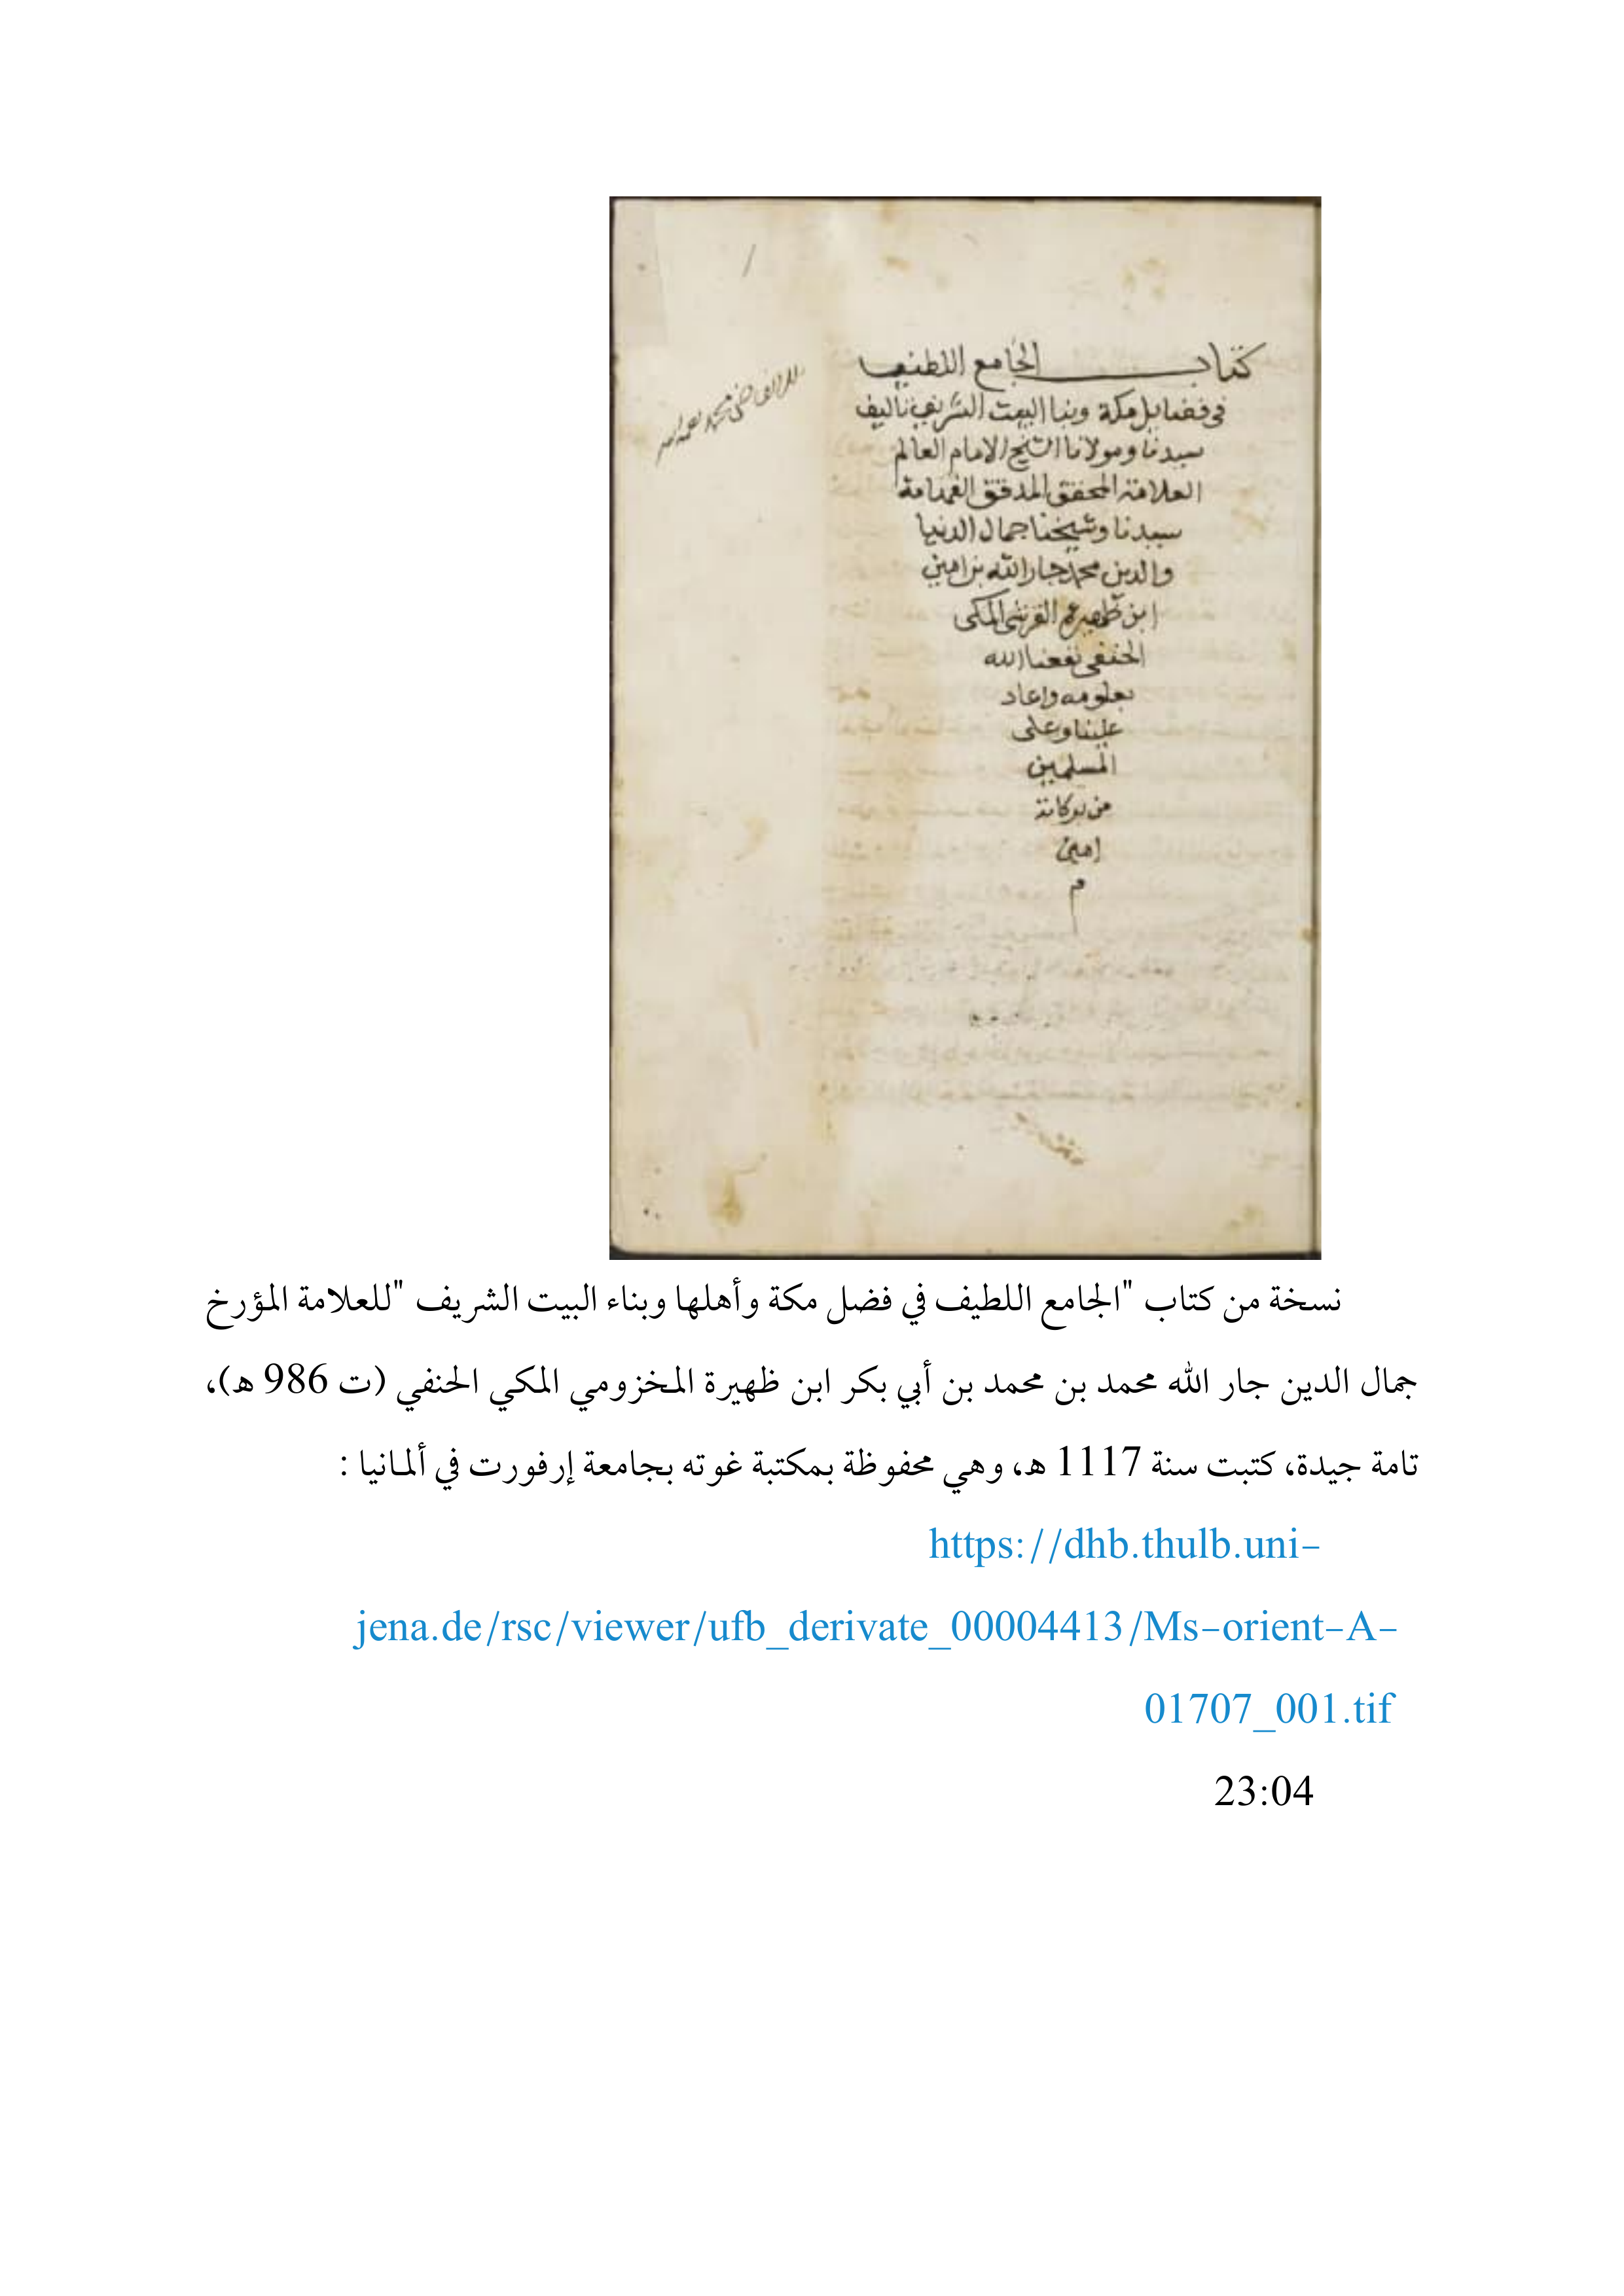 كتاب الجامع اللطيف
في فضايل مكة وبنا البيت الشريف تاليف
سيدنا ومولانا الشيخ الامام العالم
العلامة المحقق المدقق الفهامة
سيدنا وشيخنا جمال الدنيا
والدين محمد جار الله بن امين
ابن ظهيره القرشي المكي
الحنفي نفعنا الله
بعلومه واعاد
علينا وعلى
المسلمين
من بركاته
امين
م
نسخة من كتاب "الجامع اللطيف في فضل مكة وأهلها وبناء البيت الشريف "للعلامة المؤرخ
جمال الدين جار الله محمد بن محمد بن أبي بكر ابن ظهيرة المخزومي المكي الحنفي (ت 986 ه)،
تامة جيدة، كتبت سنة 1117 ه، وهي محفوظة بمكتبة غوته بجامعة إرفورت في ألمانيا :
https://dhb.thulb.uni-
jena.de/rsc/viewer/ufb_derivate_00004413/Ms-orient-A-
01707_001.tif
23:04